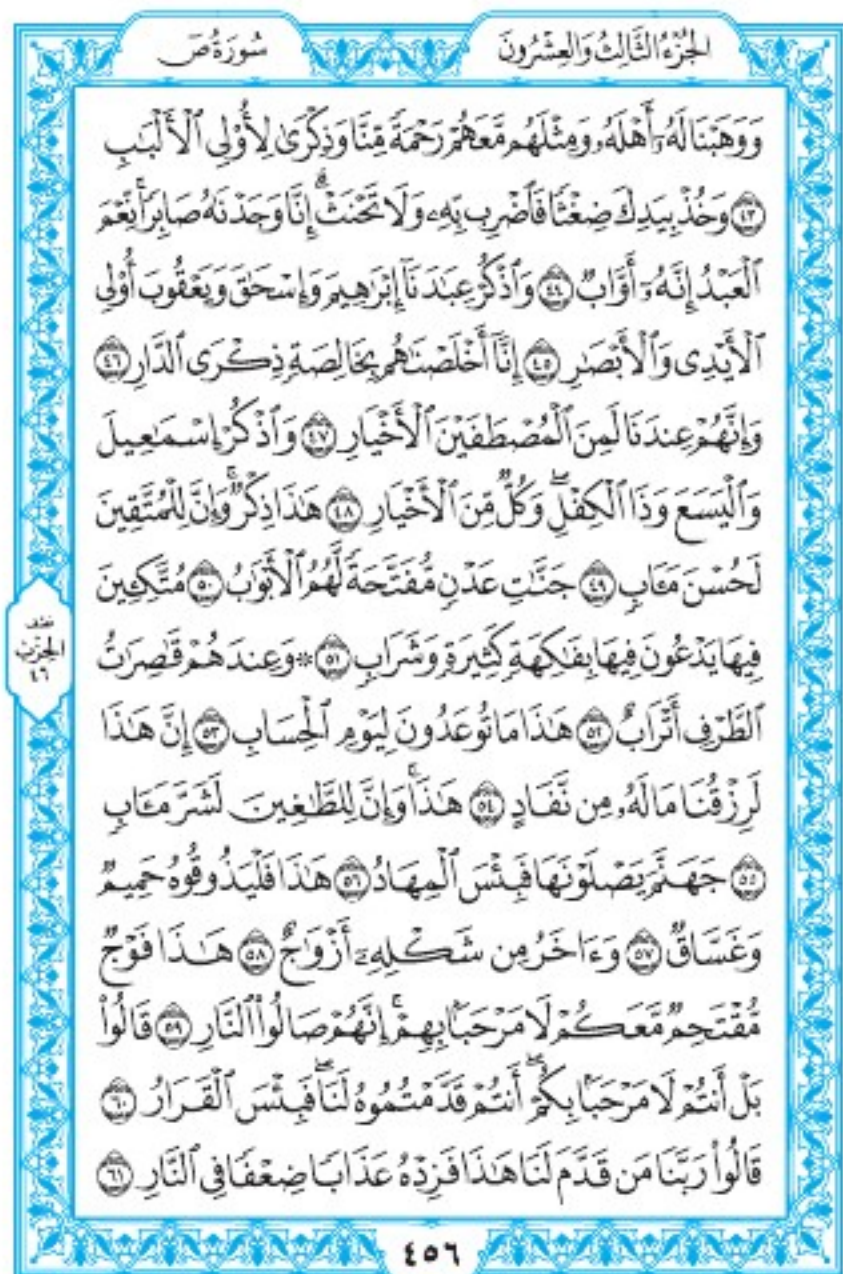 الجُزْءُ الثَّالِثُ وَالعِشْرُونَ
سُورَةُ صٓ
وَوَهَبْنَا لَهُۥٓ أَهْلَهُۥ وَمِثْلَهُم مَّعَهُمْ رَحْمَةً مِّنَّا وَذِكْرَىٰ لِأُو۟لِى ٱلْأَلْبَٰبِ
﴿٤٣﴾ وَخُذْ بِيَدِكَ ضِغْثًا فَٱضْرِب بِّهِۦ وَلَا تَحْنَثْ ۗ إِنَّا وَجَدْنَٰهُ صَابِرًا ۚ نِّعْمَ
ٱلْعَبْدُ ۖ إِنَّهُۥٓ أَوَّابٌ ﴿٤٤﴾ وَٱذْكُرْ عِبَٰدَنَآ إِبْرَٰهِيمَ وَإِسْحَٰقَ وَيَعْقُوبَ أُو۟لِى
ٱلْأَيْدِى وَٱلْأَبْصَٰرِ ﴿٤٥﴾ إِنَّآ أَخْلَصْنَٰهُم بِخَالِصَةٍ ذِكْرَى ٱلدَّارِ ﴿٤٦﴾
وَإِنَّهُمْ عِندَنَا لَمِنَ ٱلْمُصْطَفَيْنَ ٱلْأَخْيَارِ ﴿٤٧﴾ وَٱذْكُرْ إِسْمَٰعِيلَ
وَٱلْيَسَعَ وَذَا ٱلْكِفْلِ ۖ وَكُلٌّ مِّنَ ٱلْأَخْيَارِ ﴿٤٨﴾ هَٰذَا ذِكْرٌ ۚ وَإِنَّ لِلْمُتَّقِينَ
لَحُسْنَ مَـَٔابٍ ﴿٤٩﴾ جَنَّٰتِ عَدْنٍ مُّفَتَّحَةً لَّهُمُ ٱلْأَبْوَٰبُ ﴿٥٠﴾ مُتَّكِـِٔينَ
فِيهَا يَدْعُونَ فِيهَا بِفَٰكِهَةٍ كَثِيرَةٍ وَشَرَابٍ ﴿٥١﴾ * وَعِندَهُمْ قَٰصِرَٰتُ
ٱلطَّرْفِ أَتْرَابٌ ﴿٥٢﴾ هَٰذَا مَا تُوعَدُونَ لِيَوْمِ ٱلْحِسَابِ ﴿٥٣﴾ إِنَّ هَٰذَا
لَرِزْقُنَا مَا لَهُۥ مِن نَّفَادٍ ﴿٥٤﴾ هَٰذَا ۚ وَإِنَّ لِلطَّٰغِينَ لَشَرَّ مَـَٔابٍ
﴿٥٥﴾ جَهَنَّمَ يَصْلَوْنَهَا فَبِئْسَ ٱلْمِهَادُ ﴿٥٦﴾ هَٰذَا فَلْيَذُوقُوهُ حَمِيمٌ
وَغَسَّاقٌ ﴿٥٧﴾ وَءَاخَرُ مِن شَكْلِهِۦٓ أَزْوَٰجٌ ﴿٥٨﴾ هَٰذَا فَوْجٌ
مُّقْتَحِمٌ مَّعَكُمْ ۖ لَا مَرْحَبًۢا بِهِمْ ۚ إِنَّهُمْ صَالُوا۟ ٱلنَّارِ ﴿٥٩﴾ قَالُوا۟
بَلْ أَنتُمْ لَا مَرْحَبًۢا بِكُمْ ۖ أَنتُمْ قَدَّمْتُمُوهُ لَنَا ۖ فَبِئْسَ ٱلْقَرَارُ ﴿٦٠﴾
قَالُوا۟ رَبَّنَا مَن قَدَّمَ لَنَا هَٰذَا فَزِدْهُ عَذَابًا ضِعْفًا فِى ٱلنَّارِ ﴿٦١﴾
الحِزْبُ
٤٦
٤٥٦